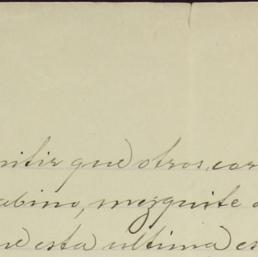 mitir que otros, cor
abino, mezquite
ue esta ultima es